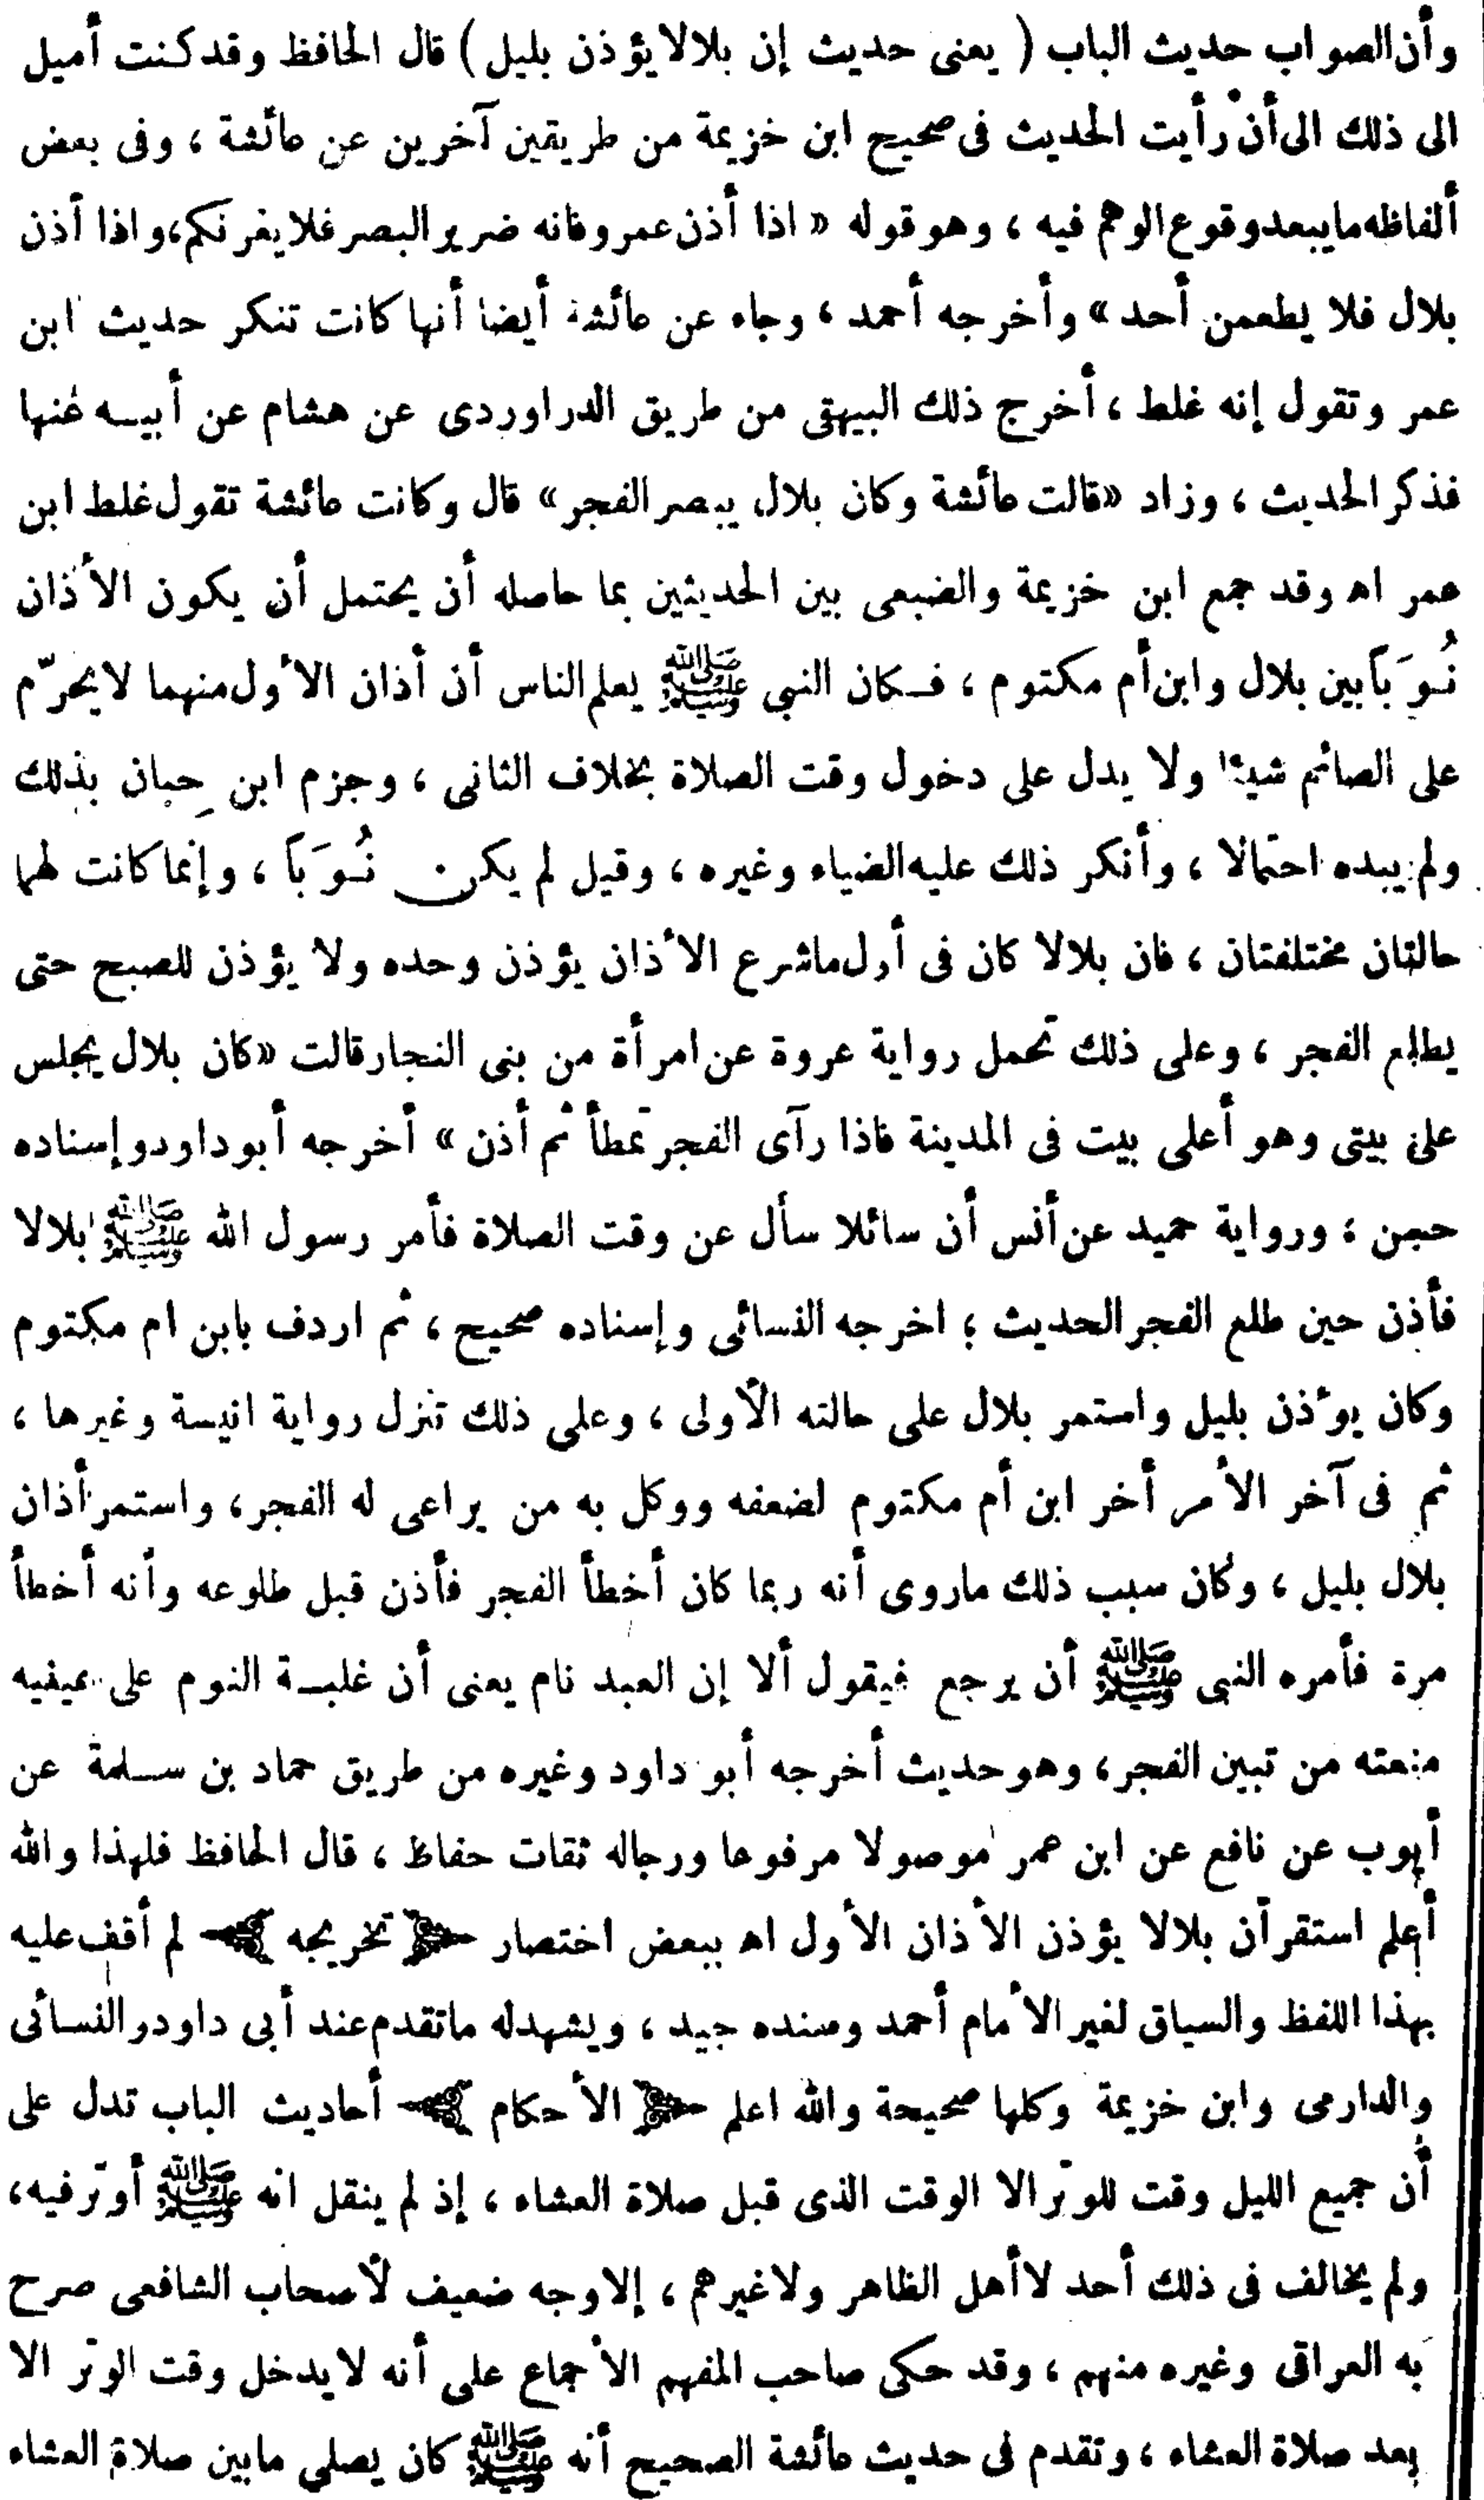 وأن الصواب حديث الباب ( يعنى حديث إن بلالا يؤذن بليل ) قال الحافظ وقد كنت أميل
الى ذلك الى أن رأيت الحديث فى صحيح ابن خزيمة من طريقين آخرين عن عائشة ، وفى بعض
ألفاظه ما يبعد وقوع الوهم فيه ، وهو قوله « اذا أذن عمرو فانه ضرير البصر فلا يغرنكم، واذا أذن
بلال فلا يطعمن أحد » وأخرجه أحمد ، وجاء عن عائشة أيضا أنها كانت تنكر حديث ابن
عمر وتقول إنه غلط ، أخرج ذلك البيهقى من طريق الدراوردى عن هشام عن أبيه عنها
فذكر الحديث ، وزاد «قالت عائشة وكان بلال يبصر الفجر» قال وكانت عائشة تقول غلط ابن
عمر اه وقد جمع ابن خزيمة والضبعى بين الحديثين بما حاصله أن يحتمل أن يكون الأذان
نُوَبًا بين بلال وابن أم مكتوم ، فكان النبى ﷺ يعلم الناس أن أذان الأول منهما لا يحرّم
على الصائم شيئا ولا يدل على دخول وقت الصلاة بخلاف الثانى ، وجزم ابن حِبان بذلك
ولم يبده احتمالا ، وأنكر ذلك عليه الضياء وغيره ، وقيل لم يكن نُوَبًا ، وإنما كانت لهما
حالتان مختلفتان ، فان بلالا كان فى أول ما شرع الأذان يؤذن وحده ولا يؤذن للصبح حتى
يطلع الفجر ، وعلى ذلك تحمل رواية عروة عن امرأة من بنى النجار قالت «كان بلال يجلس
على بيتى وهو أعلى بيت فى المدينة فاذا رآى الفجر تمطأ ثم أذن » أخرجه أبو داود وإسناده
حسن ؛ ورواية حميد عن أنس أن سائلا سأل عن وقت الصلاة فأمر رسول الله ﷺ بلالا
فأذن حين طلع الفجر الحديث ؛ اخرجه النسائى وإسناده صحيح ، ثم اردف بابن ام مكتوم
وكان يؤذن بليل واستمر بلال على حالته الأولى ، وعلى ذلك تنزل رواية انيسة وغيرها ،
ثم فى آخر الأمر أخر ابن أم مكتوم لضعفه ووكل به من يراعى له الفجر، واستمر أذان
بلال بليل ، وكان سبب ذلك ماروى أنه ربما كان أخطأ الفجر فأذن قبل طلوعه وأنه أخطأ
مرة فأمره النبى ﷺ أن يرجع فيقول ألا إن العبد نام يعنى أن غلبة النوم على عينيه
منعته من تبين الفجر، وهو حديث أخرجه أبو داود وغيره من طريق حماد بن سلمة عن
أيوب عن نافع عن ابن عمر موصولا مرفوعا ورجاله ثقات حفاظ ، قال الحافظ فلهذا والله
أعلم استقر أن بلالا يؤذن الأذان الأول اه ببعض اختصار تخريجه لم أقف عليه
بهذا اللفظ والسياق لغير الأمام أحمد وسنده جيد ، ويشهد له ما تقدم عند أبى داود والنسائى
والدارمى وابن خزيمة وكلها صحيحة والله اعلم الأحكام أحاديث الباب تدل على
أن جميع الليل وقت للوتر الا الوقت الذى قبل صلاة العشاء ، إذ لم ينقل انه ﷺ أوتر فيه،
ولم يخالف فى ذلك أحد لا أهل الظاهر ولا غيرهم ، إلا وجه ضعيف لأصحاب الشافعى صرح
به العراقى وغيره منهم ، وقد حكى صاحب المفهم الأجماع على أنه لا يدخل وقت الوتر الا
بعد صلاة العشاء ، وتقدم فى حديث عائشة الصحيح أنه ﷺ كان يصلي ما بين صلاة العشاء